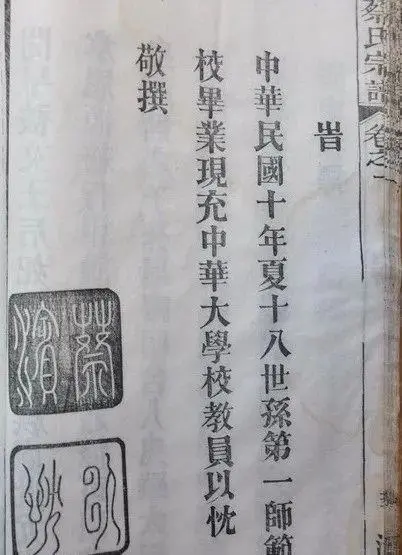 蔡氏宗譜 卷之一
旹
中華民國十年夏十八世孫第一師範
校畢業現充中華大學校教員以忱
敬撰
蔡濱
以忱